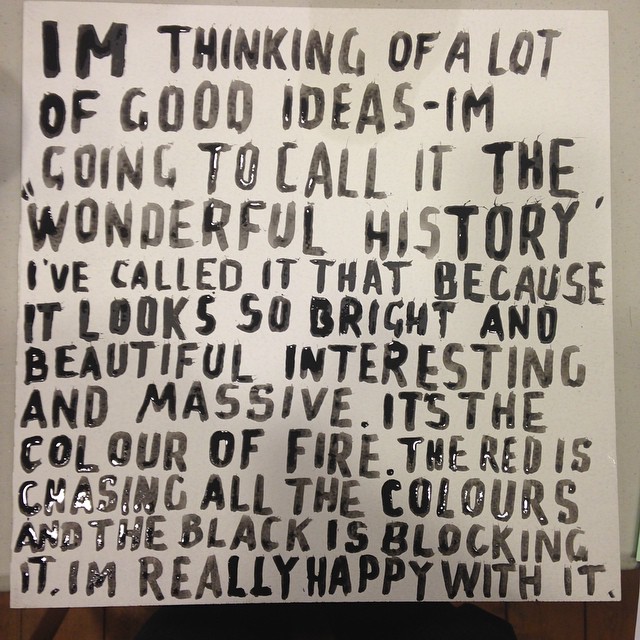 IM THINKING OF A LOT
OF GOOD IDEAS-IM
GOING TO CALL IT THE
"WONDERFUL HISTORY'
I'VE CALLED IT THAT BECAUSE
IT LOOKS SO BRIGHT AND
BEAUTIFUL INTERESTING
AND MASSIVE. IT'S THE
COLOUR OF FIRE. THE RED IS
CHASING ALL THE COLOURS
AND THE BLACK IS BLOCKING
IT. IM REALLY HAPPY WITH IT.